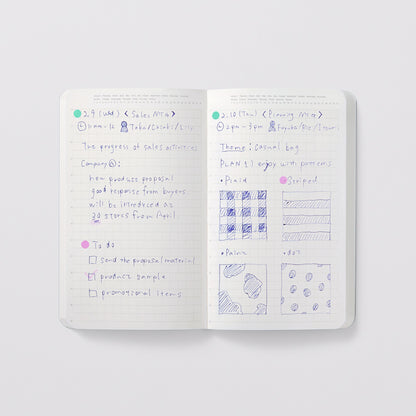 2.9 (Wed) < Sales MTG >
11am-12
The progress of sales activities
Company Ⓐ:
new produce proposal
good response from buyers
will be introduced at
30 stores from April.
To do
send the proposal material
product sample
promotional items
2.10 (Thu) < Planning MTG >
2pm-3pm
Theme: casual bag
PLAN 1) enjoy with patterns
• Plaid
Striped
• dot